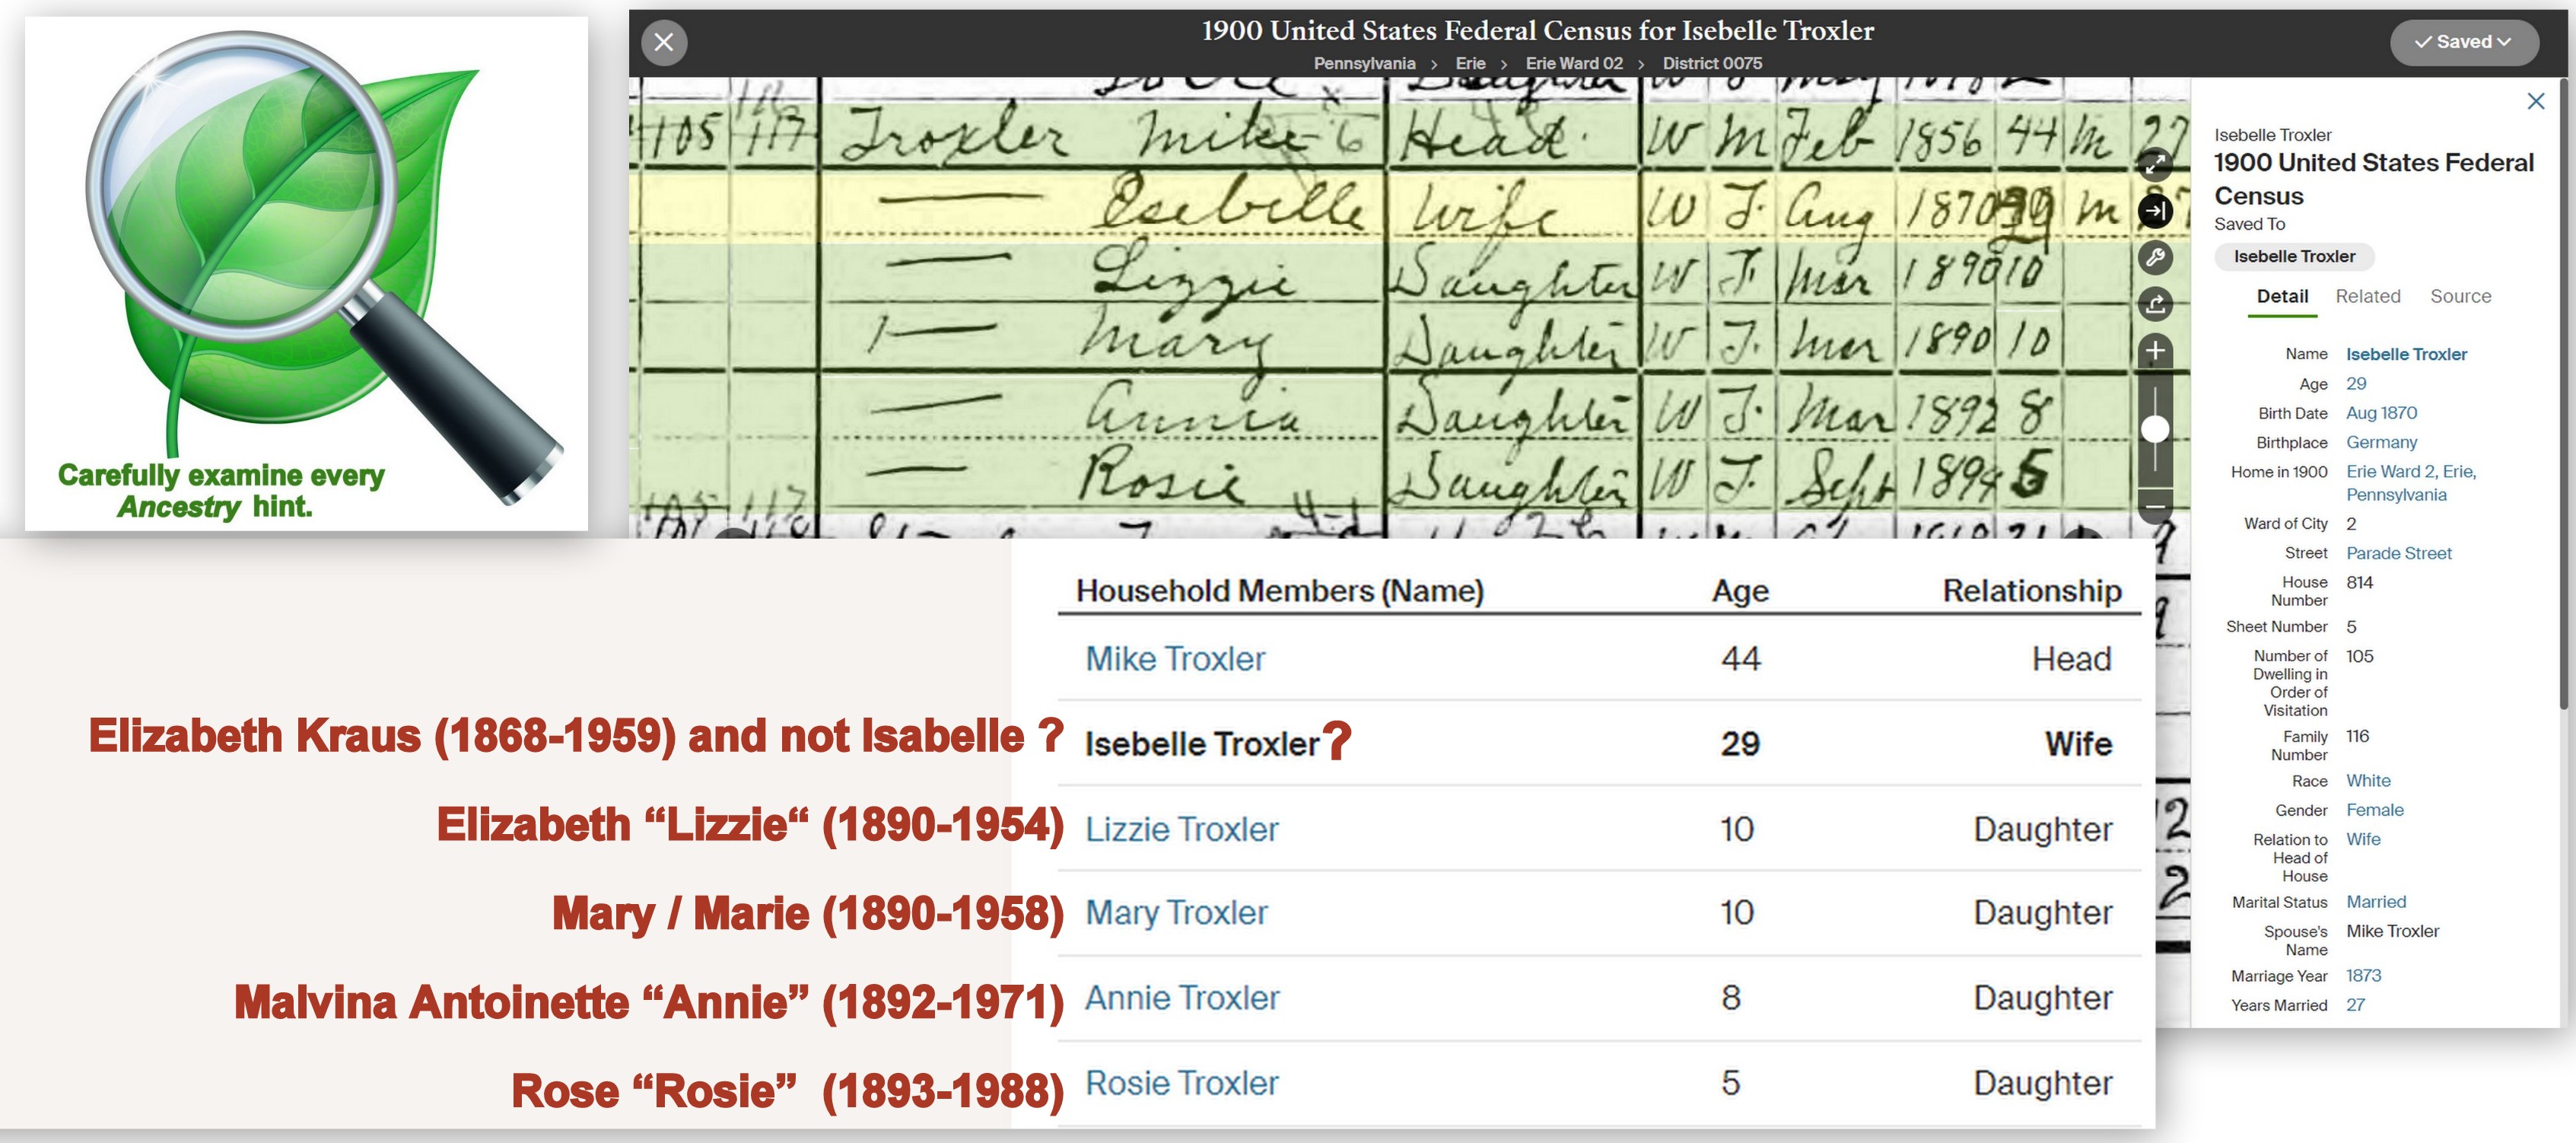 Carefully examine every
Ancestry hint.
1900 United States Federal Census for Isebelle Troxler
Pennsylvania > Erie > Erie Ward 02 > District 0075
✓ Saved
Daughter W
105 117 Troxler Mike 6 Head W M Feb 1856 44 M 27
— Esebelle Wife W F. Aug 1870 29 M
— Lizzie Daughter W F. Mar 1890 10
— Mary Daughter W F. Mar 1890 10
— Annia Daughter W F. Mar 1892 8
— Rosie Daughter W F. Sept 1894 5
Isebelle Troxler
1900 United States Federal
Census
Saved To
Isebelle Troxler
Detail Related Source
Name Isebelle Troxler
Age 29
Birth Date Aug 1870
Birthplace Germany
Home in 1900 Erie Ward 2, Erie,
Pennsylvania
Ward of City 2
Street Parade Street
House 814
Number
Sheet Number 5
Number of 105
Dwelling in
Order of
Visitation
Family 116
Number
Race White
Gender Female
Relation to Wife
Head of
House
Marital Status Married
Spouse's Mike Troxler
Name
Marriage Year 1873
Years Married 27
Household Members (Name) Age Relationship
Mike Troxler 44 Head
Elizabeth Kraus (1868-1959) and not Isabelle ? Isebelle Troxler ? 29 Wife
Elizabeth “Lizzie“ (1890-1954) Lizzie Troxler 10 Daughter
Mary / Marie (1890-1958) Mary Troxler 10 Daughter
Malvina Antoinette “Annie” (1892-1971) Annie Troxler 8 Daughter
Rose “Rosie” (1893-1988) Rosie Troxler 5 Daughter